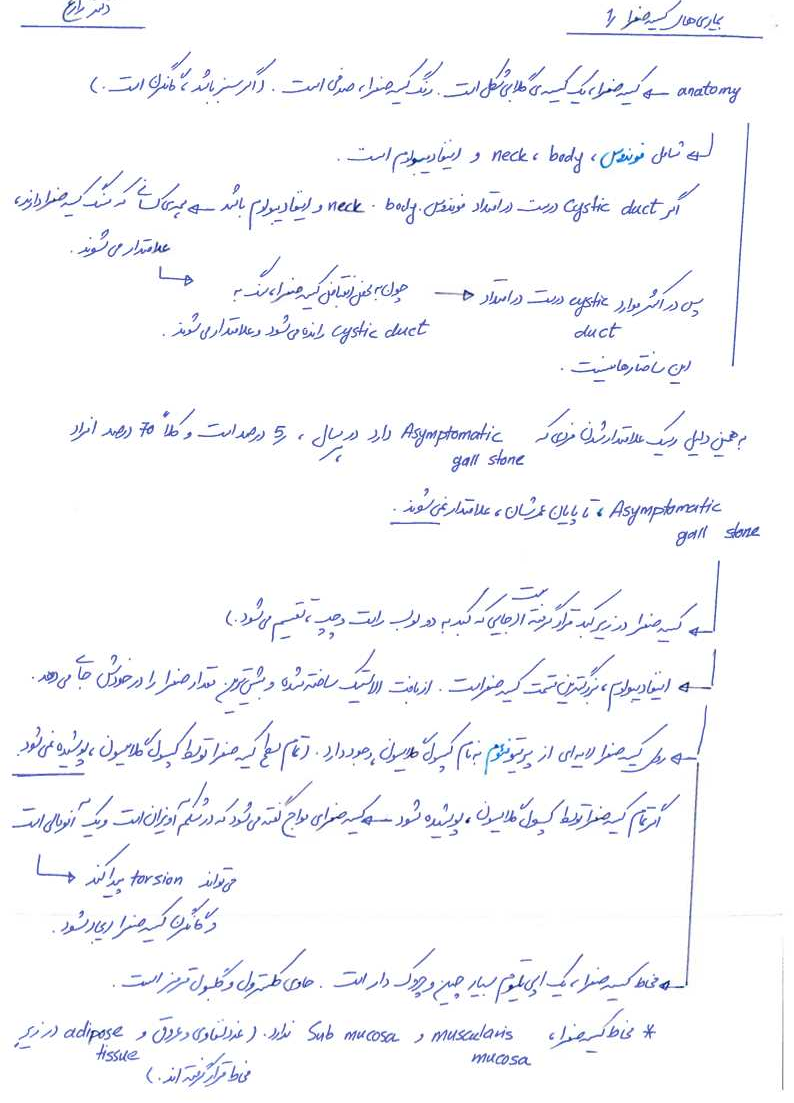 بیماری‌های کیسه صفرا 1
دکتر زارع
anatomy ← کیسه صفرا، یک کیسه‌ی گلابی شکل است. رنگ کیسه صفرا، صدفی است. (اگر سبز باشد، گانگرن است.)
↲ شامل فوندوس، neck، body و اینفاندیبولوم است.
اگر Cystic duct درست در امتداد فوندوس، body، neck و اینفاندیبولوم باشد ← همه‌ی کسانی که سنگ کیسه صفرا دارند،
علامتدار می‌شوند.
پس در اکثر موارد cystic duct درست در امتداد ← چون به محض انقباض کیسه صفرا، سنگ به
این ساختارها نیست.
cystic duct رانده می‌شود و علامتدار می‌شوند.
به همین دلیل ریسک علامتدار شدن فردی که Asymptomatic gall stone دارد در 5 سال، درصد است و کلاً 70 درصد افراد
Asymptomatic gall stone، تا پایان عمرشان، علامتدار نمی‌شوند.
← کیسه صفرا در زیر کبد قرار گرفته است (جایی که کبد به دو لوب راست و چپ، تقسیم می‌شود.)
← اینفاندیبولوم، بزرگترین قسمت کیسه صفراست. از بافت الاستیک ساخته شده و بیشترین مقدار صفرا را در خودش جا می‌دهد.
← روی کیسه صفرا لایه‌ای از پریتونئوم به نام کپسول گلایسون وجود دارد. (تمام سطح کیسه صفرا توسط کپسول گلایسون، پوشیده نمی‌شود.
اگر تمام کیسه صفرا توسط کپسول گلایسون، پوشیده شود ← کیسه صفرای مواج گفته می‌شود که در شکم آویزان است و یک آنومالی است
می‌تواند torsion پیدا کند
و گانگرن کیسه صفرا ایجاد شود.
← مخاط کیسه صفرا، یک اپی‌تلیوم بسیار چین و چروک دار است. حاوی کلسترول و گلبول قرمز است.
* مخاط کیسه صفرا، muscularis mucosa و Sub mucosa ندارد. (غدد لنفاوی و عروق و adipose tissue در زیر
مخاط قرار گرفته‌اند.)